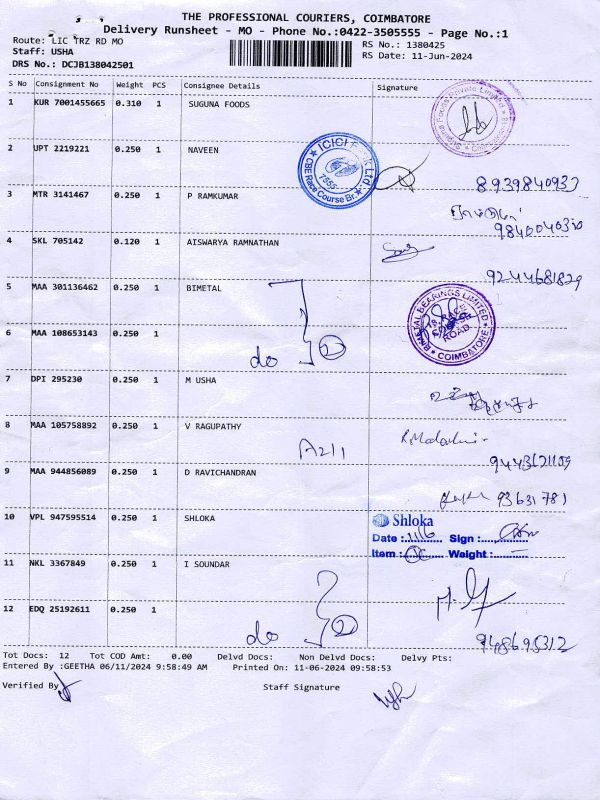 THE PROFESSIONAL COURIERS, COIMBATORE
Delivery Runsheet - MO - Phone No.:0422-3505555 - Page No.:1
Route: LIC TRZ RD MO
RS No.: 1380425
Staff: USHA
RS Date: 11-Jun-2024
DRS No.: DCJB138042501
S No Consignment No Weight PCS Consignee Details Signature
1 KUR 7001455665 0.310 1 SUGUNA FOODS
2 UPT 2219221 0.250 1 NAVEEN
ICICI Bank Ltd. CBE Race Course Br.
8939840937
3 MTR 3141467 0.250 1 P RAMKUMAR
4 SKL 705142 0.120 1 AISWARYA RAMNATHAN
9244681829
5 MAA 301136462 0.250 1 BIMETAL
BIMETAL BEARINGS LIMITED 18, RACE COURSE ROAD COIMBATORE
6 MAA 108653143 0.250 1
do 2
7 DPI 295230 0.250 1 M USHA
8 MAA 105758892 0.250 1 V RAGUPATHY
A211
9 MAA 944856089 0.250 1 D RAVICHANDRAN
93631781
10 VPL 947595514 0.250 1 SHLOKA
Shloka
Date : 11/6 Sign :
Item : Weight :
11 NKL 3367849 0.250 1 I SOUNDAR
12 EDQ 25192611 0.250 1
do 2
Tot Docs: 12 Tot COD Amt: 0.00 Delvd Docs: Non Delvd Docs: Delvy Pts:
Entered By :GEETHA 06/11/2024 9:58:49 AM Printed On: 11-06-2024 09:58:53
Verified By
Staff Signature